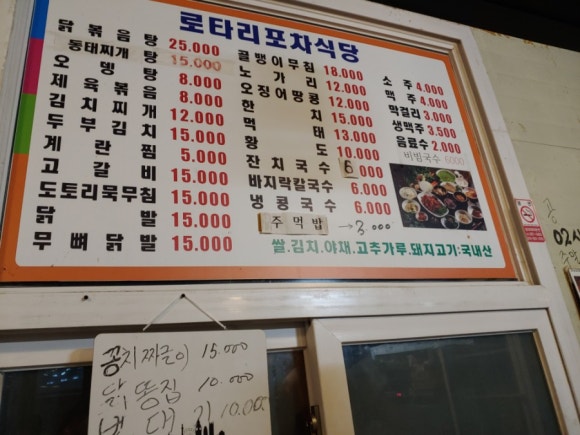 로타리포차식당
닭볶음탕 25.000
동태찌개탕 15.000
오뎅탕 8.000
제육볶음 8.000
김치찌개 12.000
두부김치 15.000
계란찜 5.000
고갈비 15.000
도토리묵무침 15.000
닭발 15.000
무뼈닭발 15.000
골뱅이무침 18.000
노가리 12.000
오징어땅콩 12.000
한치 15.000
먹태 13.000
황도 10.000
잔치국수 6.000
바지락칼국수 6.000
냉콩국수 6.000
주먹밥 →3.000
소주 4.000
맥주 4.000
막걸리 3.000
생맥주 3.500
음료수 2.000
비빔국수 6000
쌀.김치.야채.고추가루.돼지고기:국내산
꽁치짜글이 15.000
닭똥집 10.000
번데기 10.000